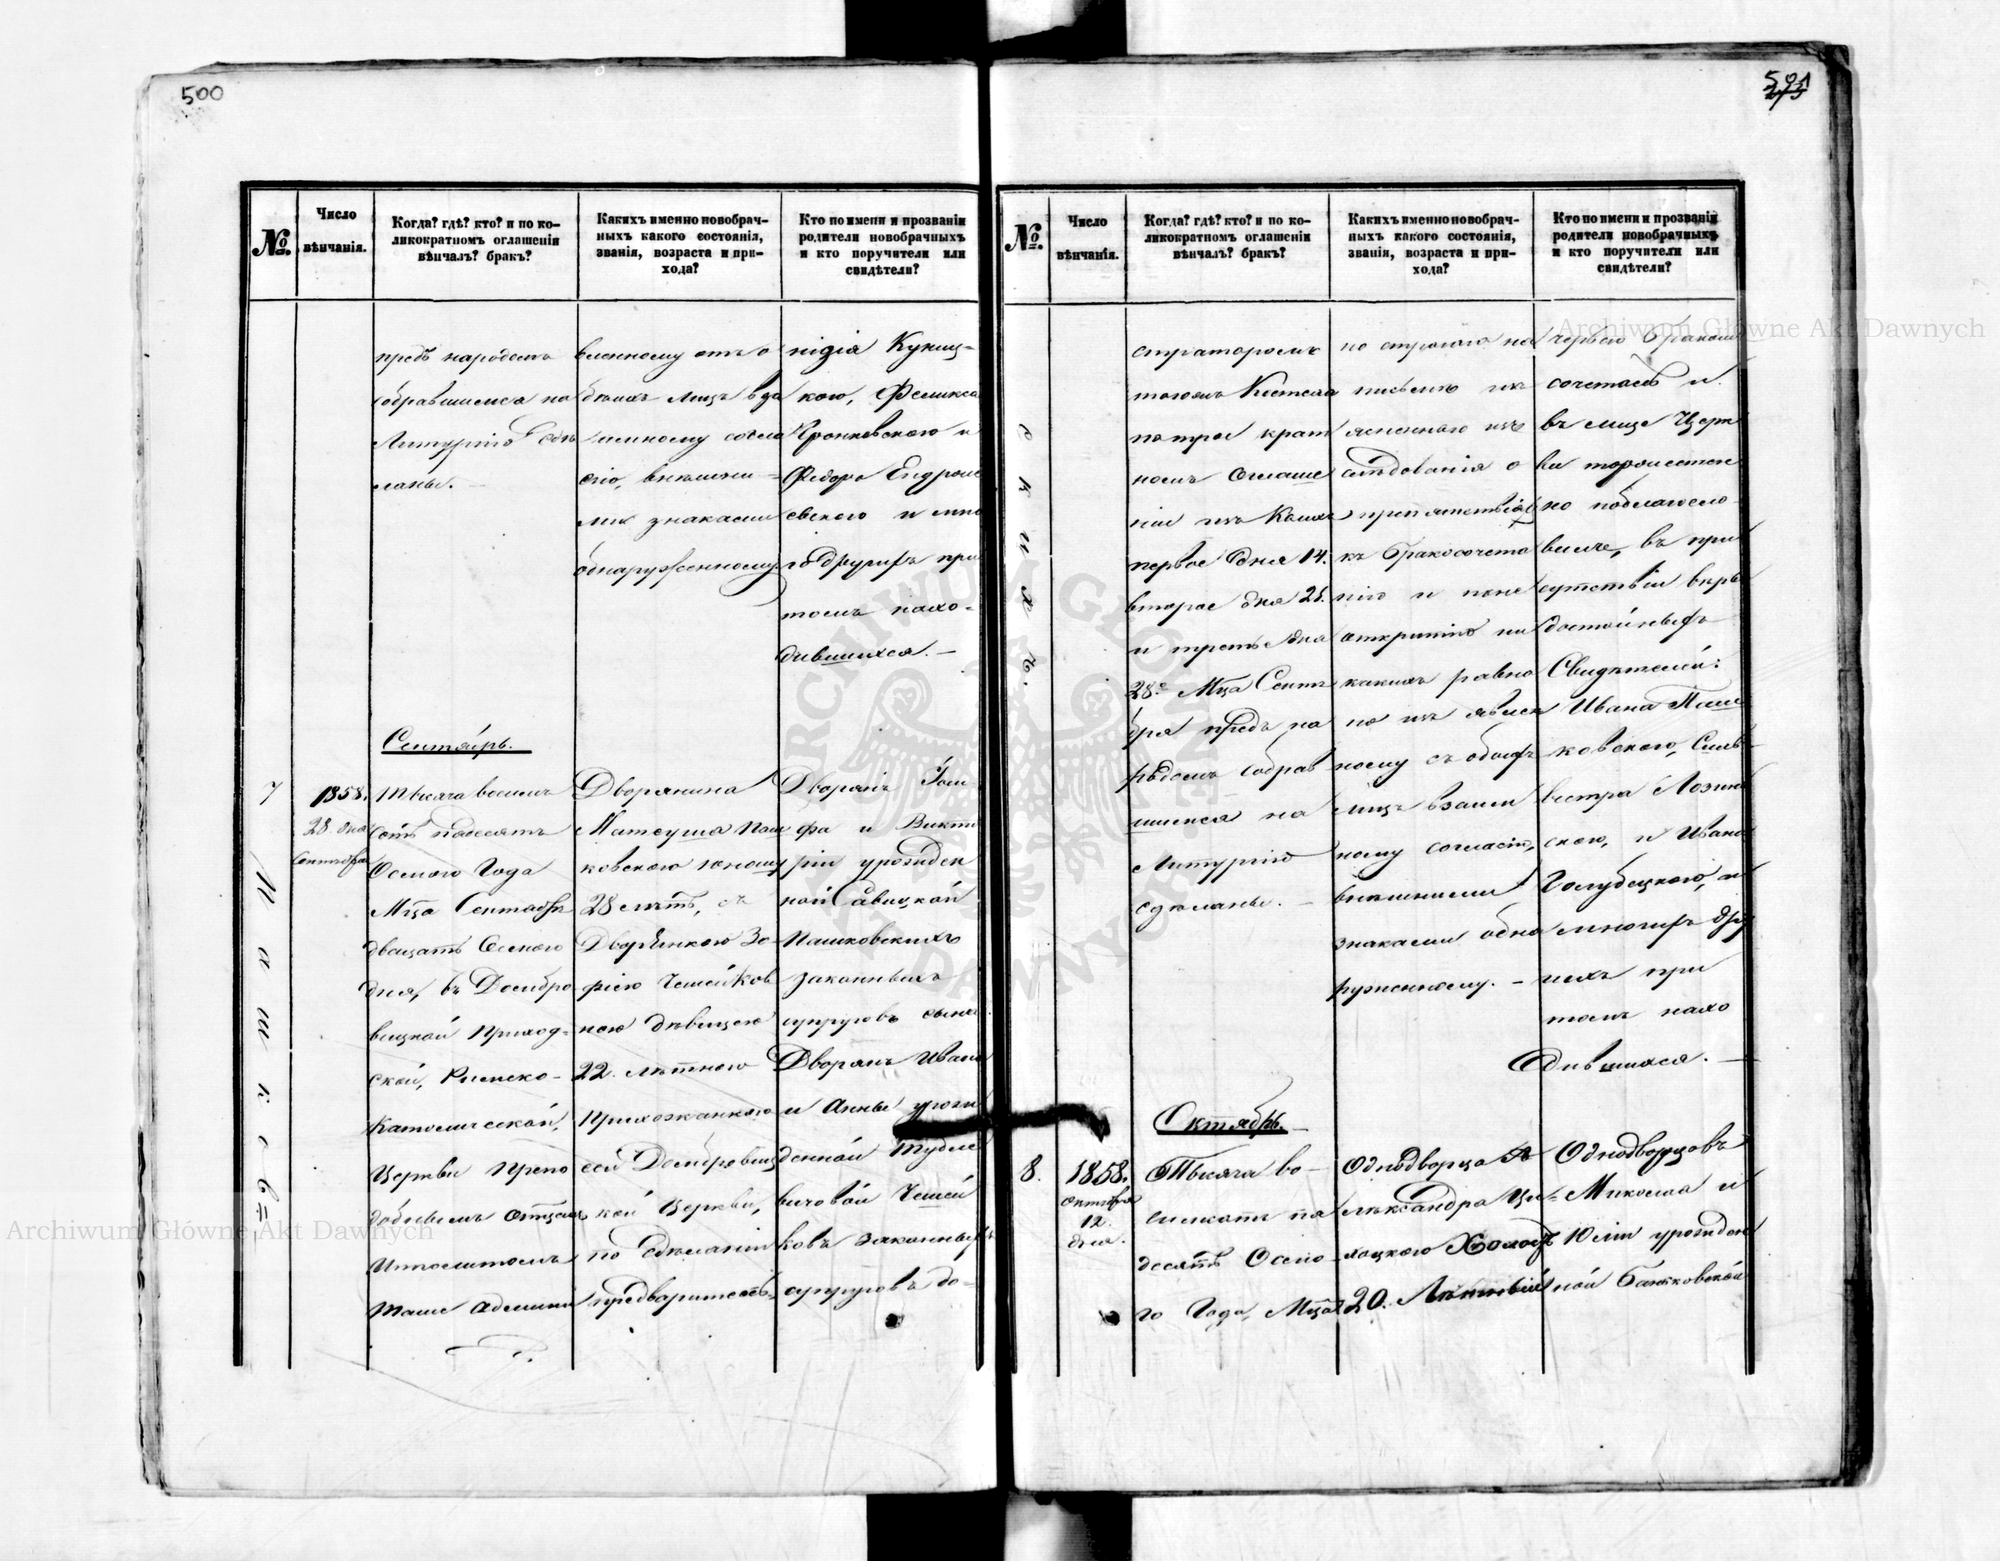 500
№.
Число
вѣнчанія.
Когда? гдѣ? кто? и по ко-
ликократномъ оглашеніи
вѣнчалъ? бракъ?
Какихъ именно новобрач-
ныхъ какого состоянія,
званія, возраста и при-
хода?
Кто по имени и прозванію
родители новобрачныхъ
и кто поручители или
свидѣтели?
предъ народомъ
собравшимся на
Литургію сдѣ
ланы. –
вленному отъ о
боихъ лицъ вза
имному согла
сію, внѣшни =
ми знаками
обнаруженному
кого, Феликса
Кронковскаго и
Федора Ендрже
евскаго и мно
го другихъ при
томъ нахо-
дившихся. –
Сентябрь.
7
Пашковъ=
1858.
28. дня
Сентября
Тысяча восемъ
сотъ пядесятъ
Осмого Года
Мца Сентября
двацать Осмого
дня, въ Домбро
вицкой Приход=
ской, Римско-
Католической,
Церкви Препо
добнымъ Отцемъ
Ипполитомъ
Таше Админи
Дворянина
Матеуша Паш
ковского юношу
28 лѣтъ, съ
Дворянкою Зо-
фіею Чешейков
ною дѣвицею
22. лѣтною
Прихожанкою
сей Домбровиц
кой Церкви,
по сдѣланіи
предваритель=
Дворянъ Іози
фа и Викто
ріи урожден
ной Савицкой
Пашковскихъ
законныхъ
супруговъ сына.
Дворянъ Ивана
и Анны урож
денной Тубле
вичовой Чешей
ковъ законныхъ
супруговъ до-
501
№.
Число
вѣнчанія.
Когда? гдѣ? кто? и по ко-
ликократномъ оглашеніи
вѣнчалъ? бракъ?
Какихъ именно новобрач-
ныхъ какого состоянія,
званія, возраста и при-
хода?
Кто по имени и прозванію
родители новобрачныхъ
и кто поручители или
свидѣтели?
скихъ.
страторомъ
тогожъ Костела
по трое крат
номъ Оглаше
ніи изъ Коихъ
первое дня 14.
второе дня 21.
и третье дня
28.е Мца Сентя
бря предъ на
родомъ собрав
шимся на
Литургію
сдѣланы. –
по строгого на
письмѣ изъ
ясненного изъ
слѣдованія о
препятствіяхъ
къ бракосочета
нію и по не
открытію ни
какихъ равно
по изъявлен
ному съ обоихъ
лицъ взаим
ному согласію,
внѣшними
знаками обна
руженному. –
черьею бракомъ
сочеталъ и
въ лицѣ Церк
ви торжествен
но поблагосло-
вилъ, въ при
сутствіи вѣро
достойныхъ
Свидѣтелей:
Ивана Паш
ковского, Силь-
вестра Лозин
ского, и Ивана
Голубецкого, и
многихъ дру
гихъ при
томъ нахо
дившихся. –
Октябрь. –
8.
1858.
Октября
12.
дня.
Тысяча во-
семьсотъ пя
десятъ Осмо-
го Года, Мца
Однодворца А
лександра Ци=
хоцкого Холост
20. Лѣтній
Однодворцовъ
Миколая и
Юліи урожден
ной Бажковской
Archiwum Główne Akt Dawnych
Archiwum Główne Akt Dawnych
ARCHIWUM GŁÓWNE AKT DAWNYCH